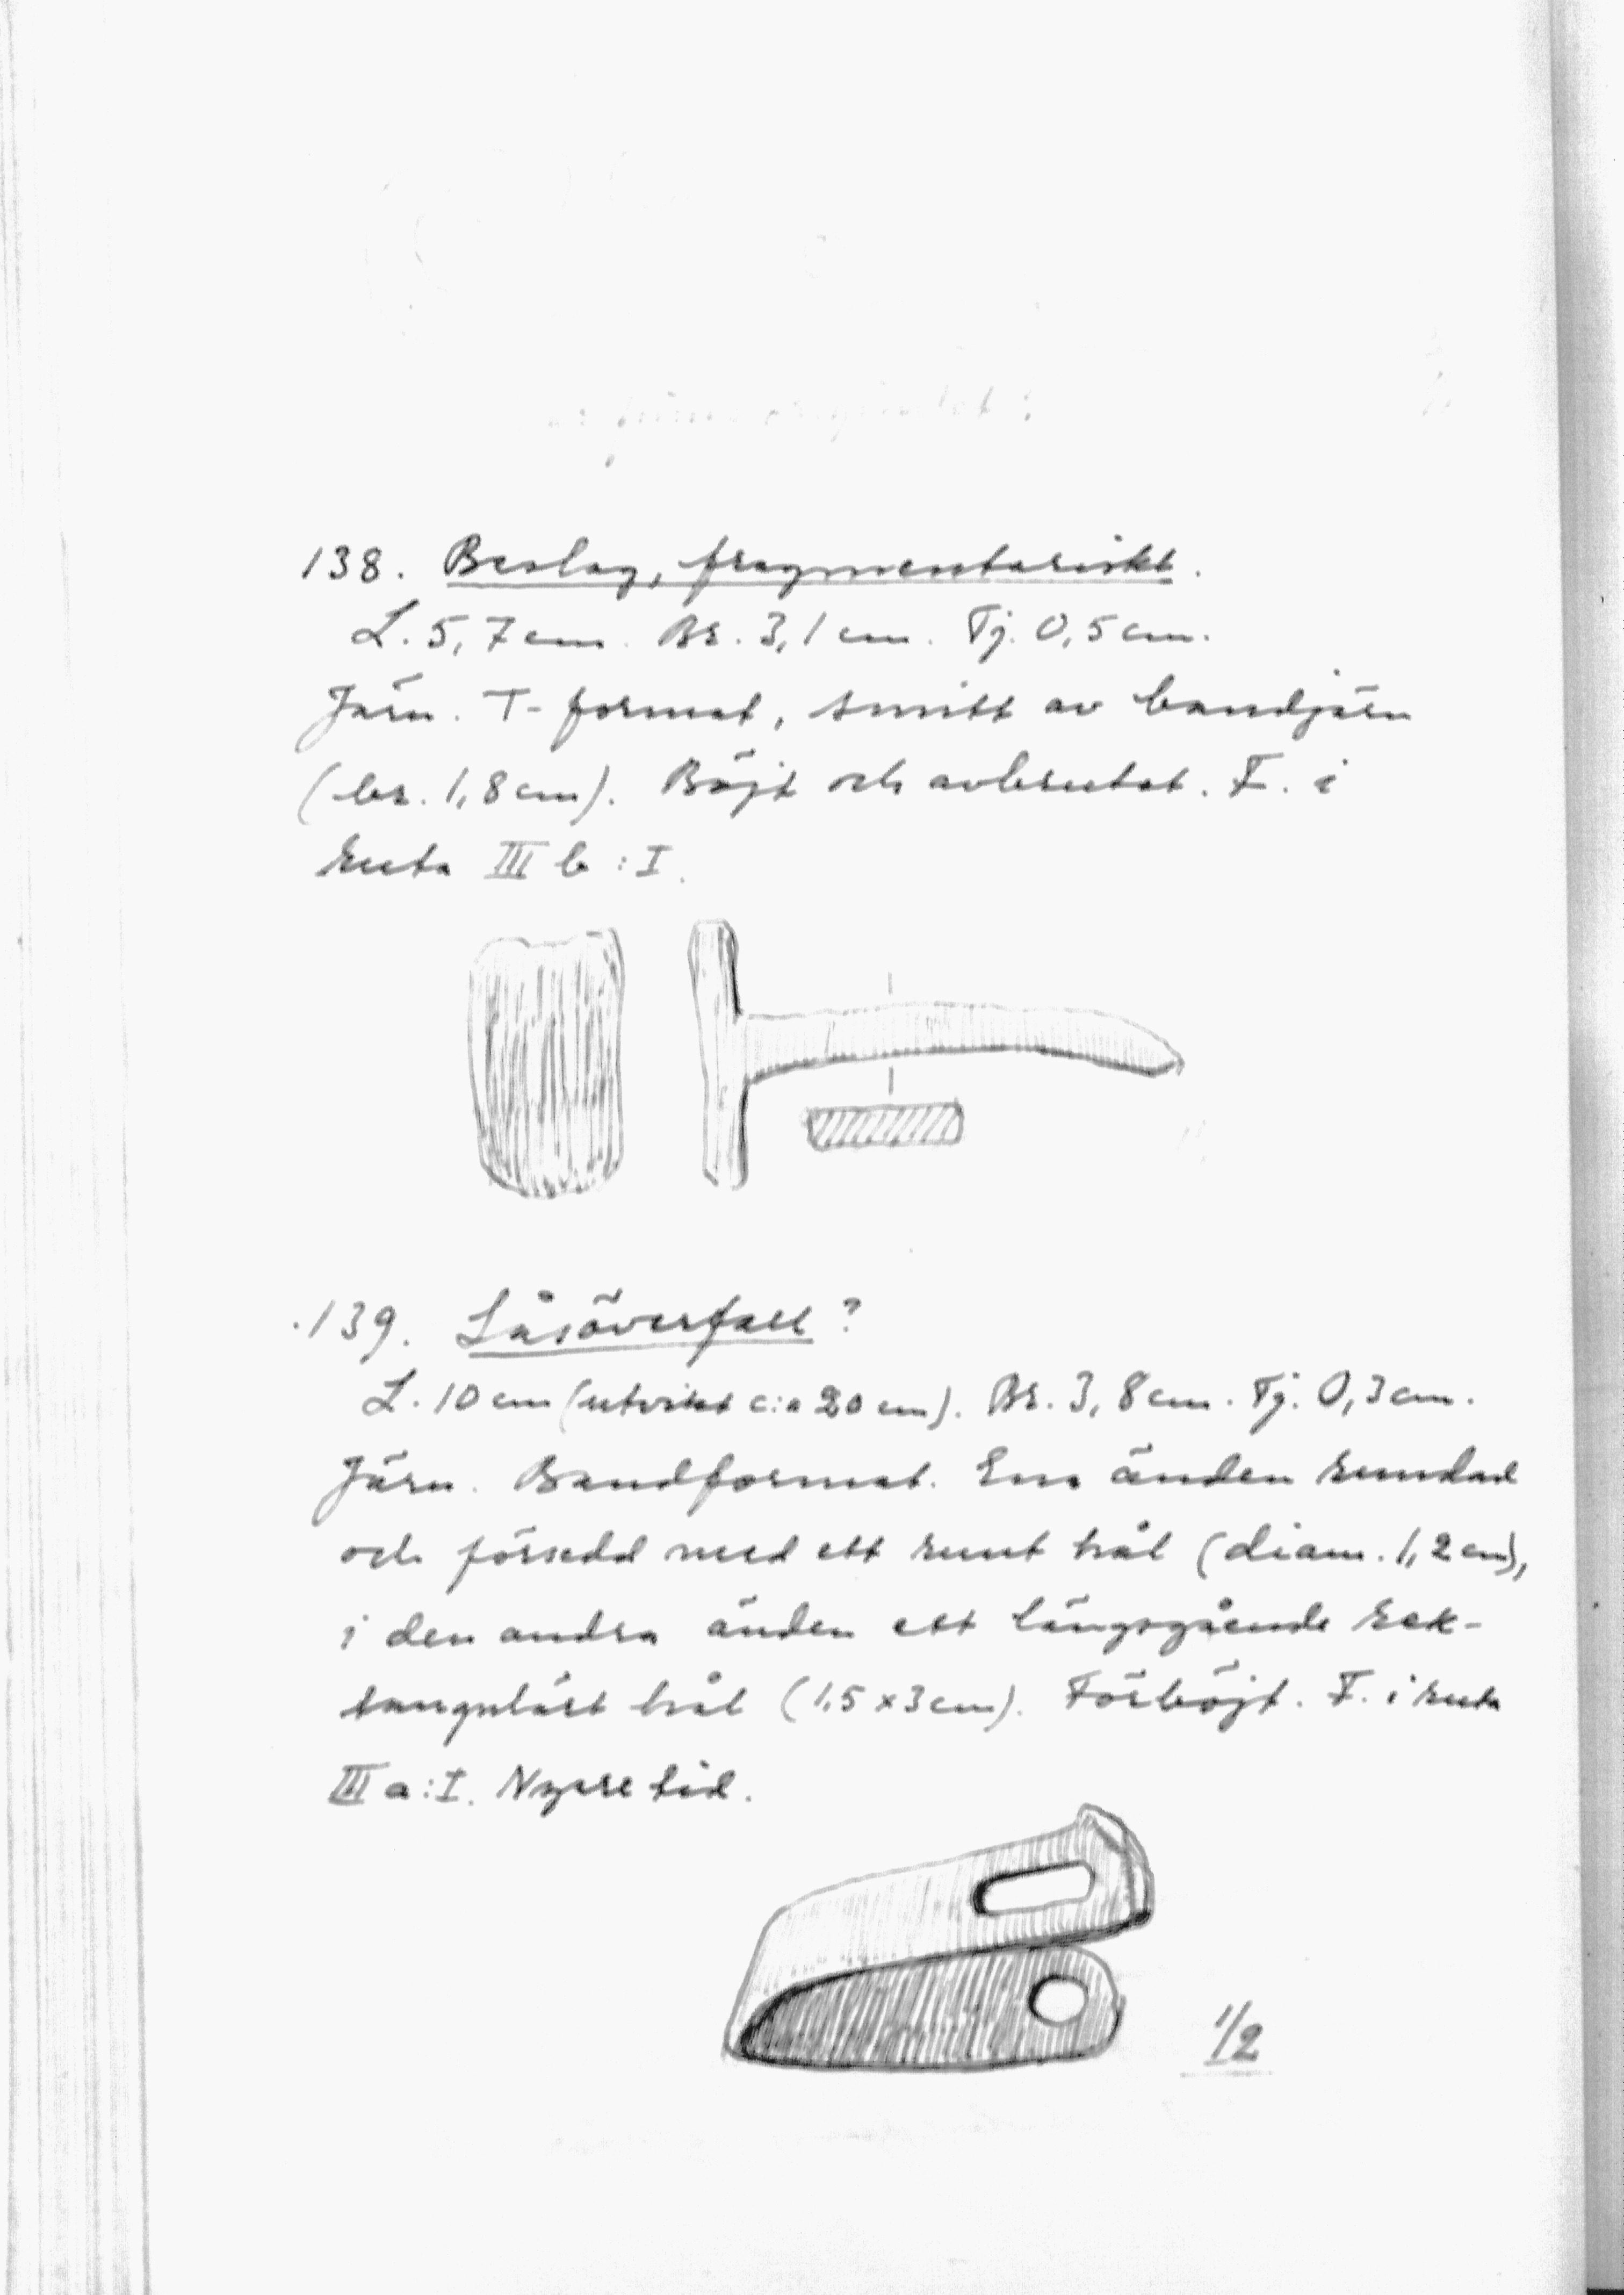 138. Beslag, fragmentariskt.
L. 5,7 cm. Br. 3,1 cm. Tj. 0,5 cm.
Järn. T-format, smitt av bandjärn
(br. 1,8 cm). Böjt och avbrutet. F. i
ruta III b : I.
139. Låsöverfall?
L. 10 cm (utvikt c:a 20 cm). Br. 3,8 cm. Tj. 0,3 cm.
Järn. Bandformat. Ena änden rundad
och försedd med ett runt hål (diam. 1,2 cm),
i den andra änden ett längsgående rek-
tangulärt hål (1,5 x 3 cm). Förböjt. F. i ruta
III a : I. Nyare tid.
1/2